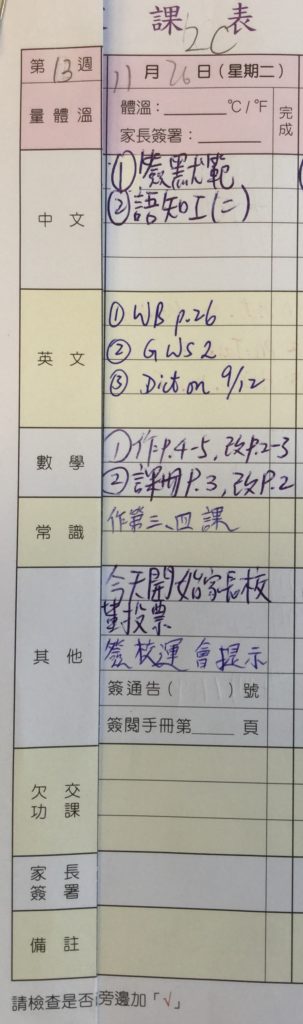 課 表
2C
第 13 週 11 月 26 日 (星期二)
量體溫 體溫：______ °C / °F 完成
家長簽署：______
中 文 ①簽默範
②語知工(二)
英 文 ① WB p.26
② GWS 2
③ Dict on 9/12
數 學 ①作P.4-5,改P.2-3
②課冊P.3,改P.2
常 識 作第三、四課
其 他 今天開始家長校
董投票
簽校運會提示
簽通告( )號
簽閱手冊第____頁
欠 交
功 課
家 長
簽 署
備 註
請檢查是否 旁邊加「√」